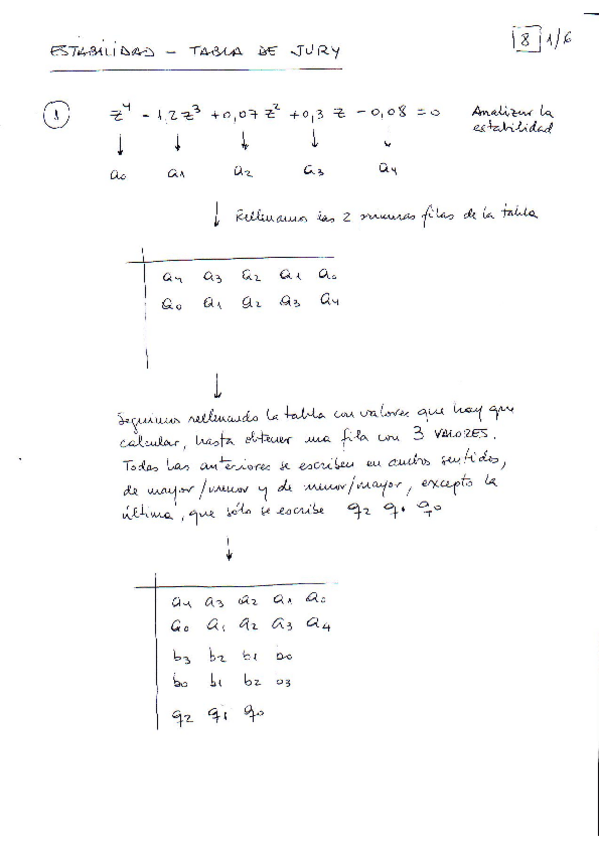 ESTABILIDAD - TABLA DE JURY
8 1/6
1 z⁴ - 1,2z³ + 0,07z² + 0,3z - 0,08 = 0 Analizar la
estabilidad
↓ ↓ ↓ ↓ ↓
a0 a1 a2 a3 a4
↓ Rellenamos las 2 primeras filas de la tabla
a4 a3 a2 a1 a0
a0 a1 a2 a3 a4
↓
Seguimos rellenando la tabla con valores que hay que
calcular, hasta obtener una fila con 3 VALORES.
Todas las anteriores se escriben en ambos sentidos,
de mayor/menor y de menor/mayor, excepto la
última, que sólo se escribe q2 q1 q0
↓
a4 a3 a2 a1 a0
a0 a1 a2 a3 a4
b3 b2 b1 b0
b0 b1 b2 b3
q2 q1 q0